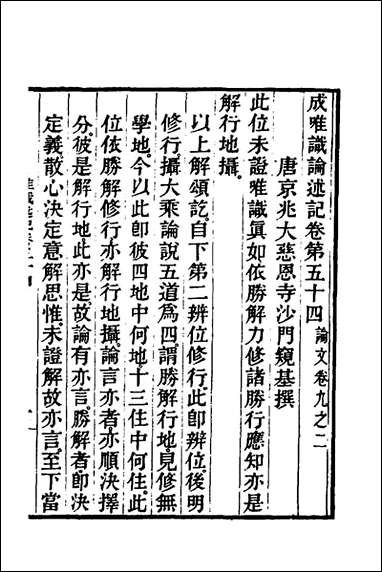 成唯識論述記卷第五十四 論文卷九之二
唐京兆大慈恩寺沙門窺基撰
此位未證唯識眞如依勝解力修諸勝行應知亦是
解行地攝。
以上解頌訖。自下第二辨位修行。此卽辨位。後明
修行。攝大乘論說五道爲四。謂勝解行地。見修無
學地。今以此卽彼四地中何地。十三住中何住。此
位依勝解修行。亦解行地攝。論言亦者。亦順決擇
分。彼是解行地。此亦是。故論有亦言。勝解者。卽決
定義。散心決定意解思惟。未證解故。亦言。至下當